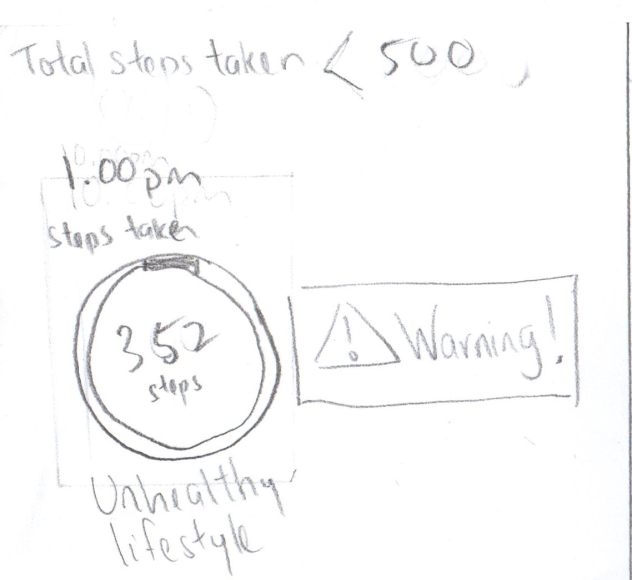 Total steps taken < 500,
1.00pm
steps taken
352
steps
! Warning!
Unhealthy
lifestyle